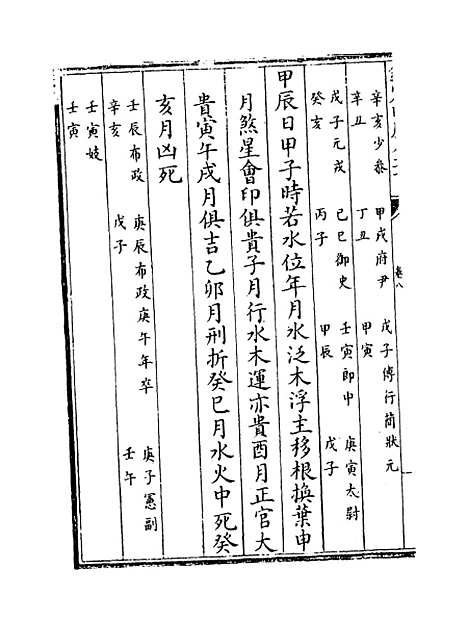 辛亥少叅　甲戌府尹　戊子傅行簡狀元
辛丑　丁丑　甲寅
戊子元戎　己巳御史　壬寅郎中　庚寅太尉
癸亥　丙子　甲辰　戊子
甲辰日甲子時若水位年月水泛木浮主移根換葉申
月煞星會印俱貴子月行水木運亦貴酉月正官大
貴寅午戌月俱吉乙卯月刑折癸巳月水火中死癸
亥月凶死
壬辰布政　庚辰布政庚午年卒　庚子憲副
辛亥　戊子　壬午
壬寅妓
壬寅
卷八